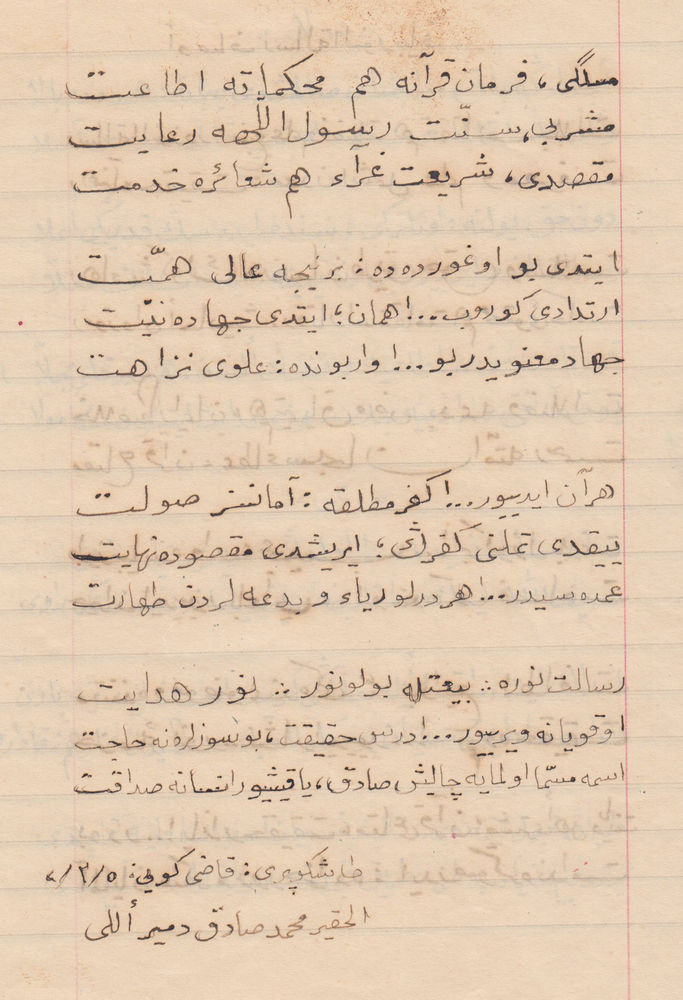 مسلگی، فرمان قرآنه هم محكماته اطاعت
مشربی، سنّت رسول اللّهه رعایت
مقصدی، شریعت غرّآء هم شعائره خدمت
ایتدی بو اوغورده ده: بر نیجه عالی همّت
ارتدادی كوروب..! همان؛ ایتدی جهاده نیّت
جهاد معنویدر بو...! وار بونده: علوی نزاهت
هر آن ایدییور...! كفر مطلقه: آمانسز صولت
ییقدی تملنی كفرڭ؛ ایریشدی مقصوده نهایت
عمده سیدر...! هر درلو ریاء و بدعه لردن طهارت
رسالت نوره :: بیعتله بولونور :: نور هدایت
اوقویانه ویرییور...! درس حقیقت، بو سوزلره نه حاجت
اسمه مسمّا اولمایه چالیش صادق، یاقیشییور انسانه صداقت
طاشكوپری: قاضی كویی: ٥/٣/
الحقیر محمد صادق دمیر أللی